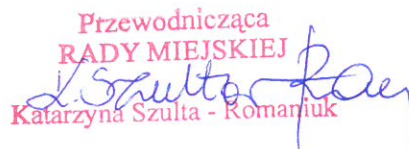 Przewodnicząca
RADY MIEJSKIEJ
Katarzyna Szulta - Romaniuk